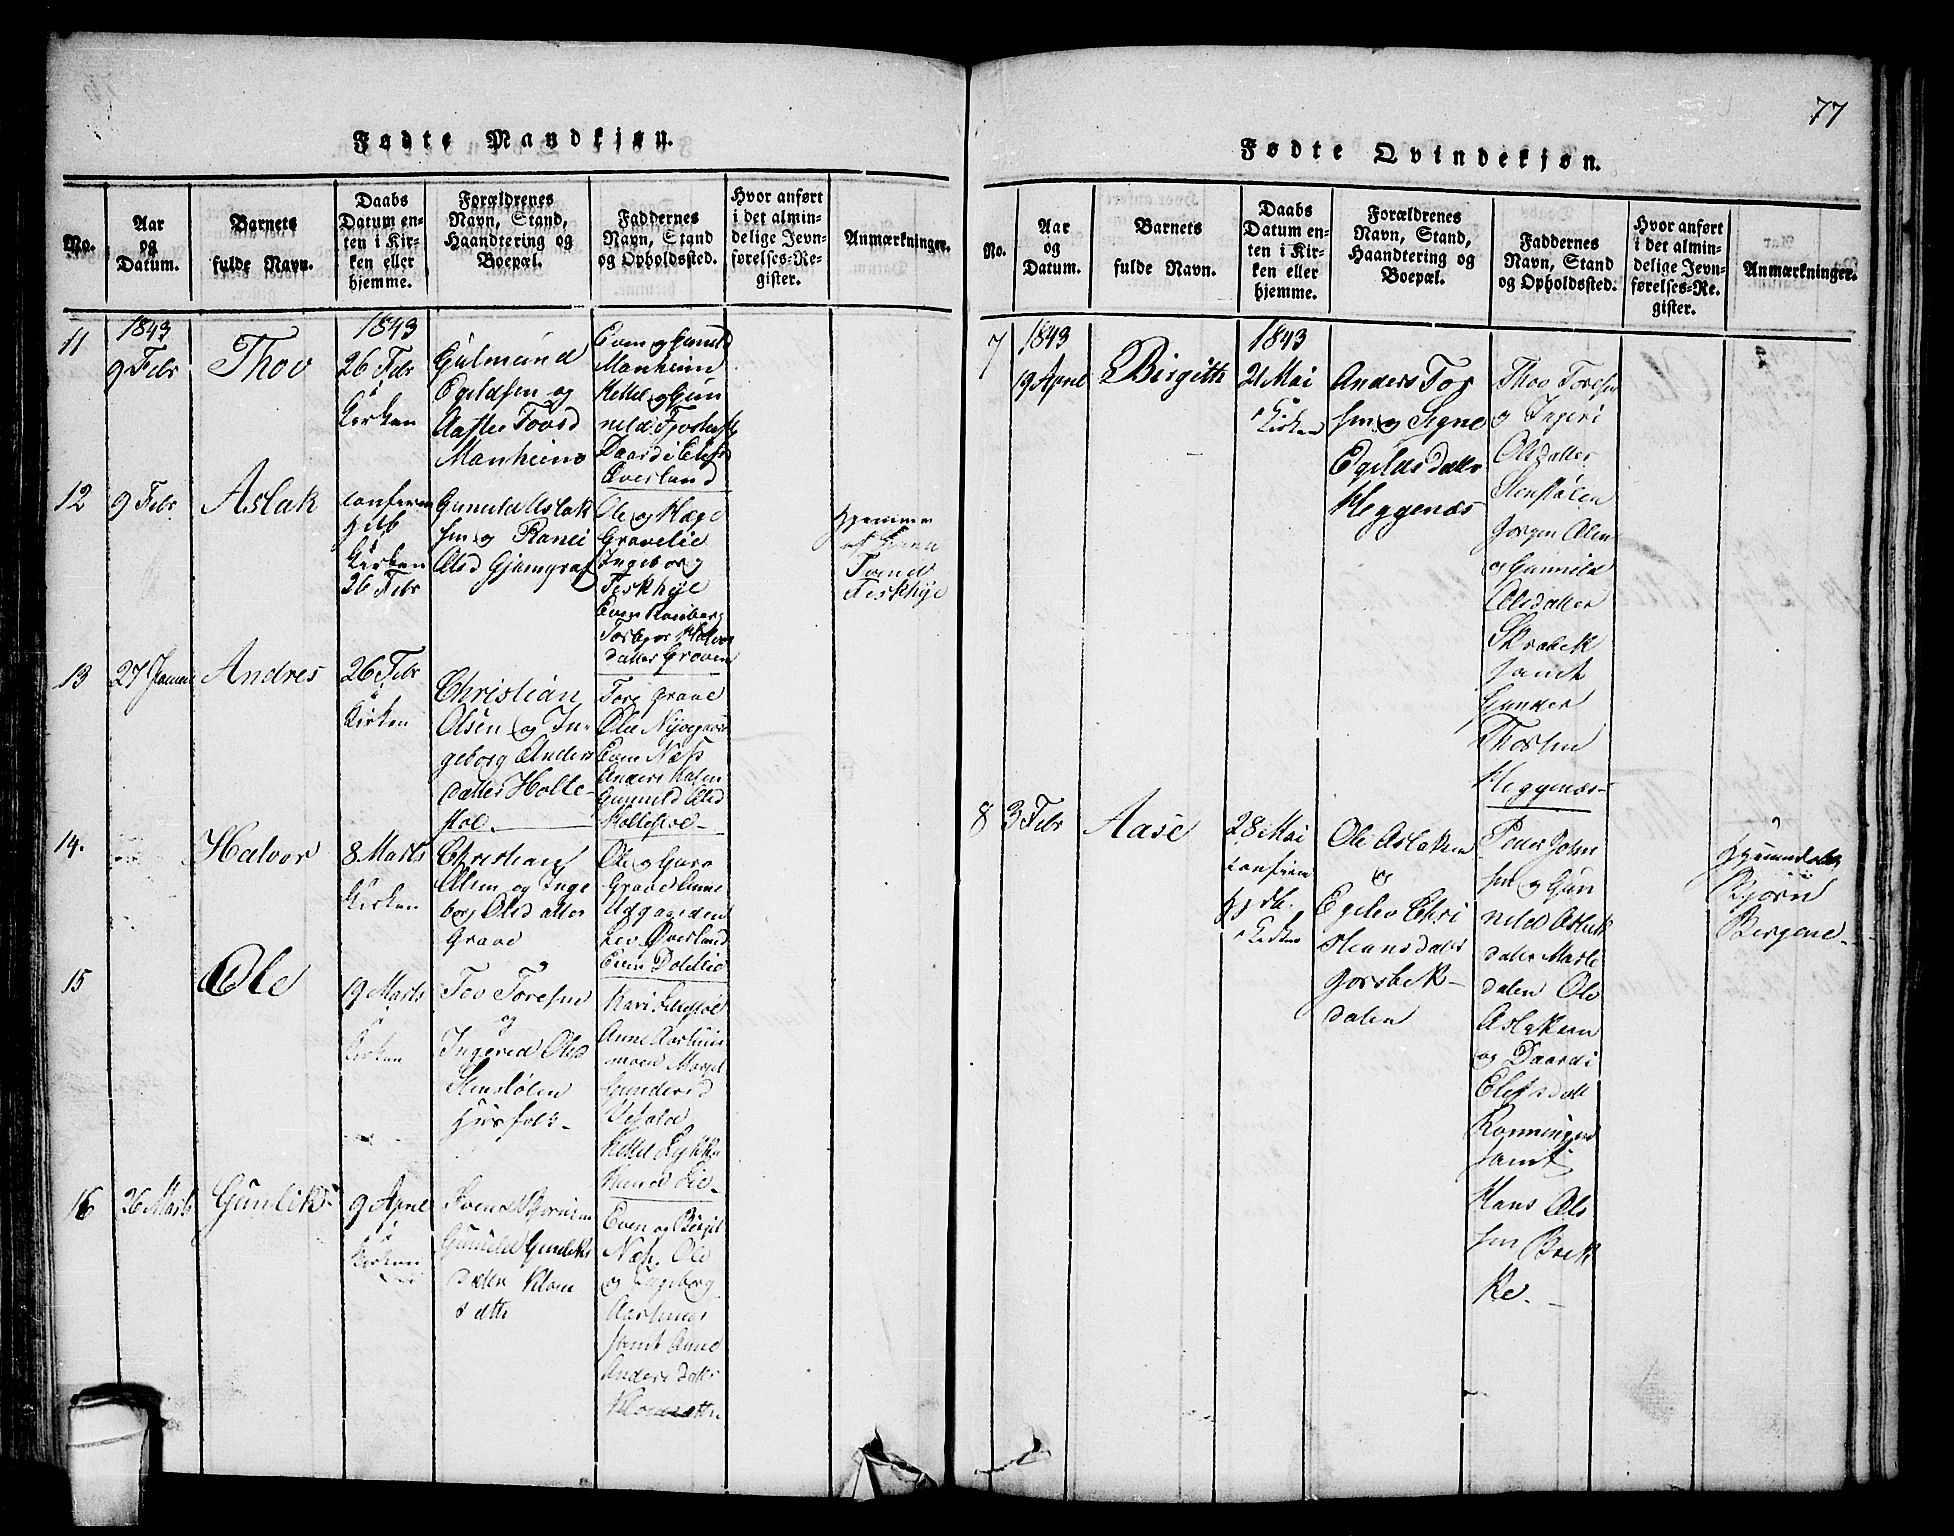 77
Fødte Mandkjøn.
No.
Aar
og
Datum.
Barnets
fulde Navn.
Daabs
Datum en-
ten i Kir-
ken eller
hjemme.
Forældrenes
Navn, Stand,
Haandtering og
Boepæl.
Faddernes
Navn, Stand
og Opholdssted.
Hvor anført
i det almin-
delige Jevn-
førelses-Re-
gister.
Anmærkninger.
11
1843
9 Febr
Thov
1843
26 Febr
i
Kirken
Gulmund
Egeldsen og
Aaste Tovsd
Manheim
Even og Gunild
Manheim
Kettel og Gun
neld
Daardi Elefsd
Overland
12
9 Febr
Aslak
confirm
Kirken
26 Febr
Gunuld Aslak
sen og Ranei
Olsd Gjømgraf
Ole og Hæge
Gravelie
Ingeborg
Teskhÿe
Even
Torbjør Halvor
datter Graven
Hjemme
af
Tovend
Teskhÿe
13
27 Januar
Andres
26 Febr
i
Kirken
Christian
Olsen og In-
geborg Anders
datter Holte-
stoe
Tore Grave
Ole
Even Næss
Anders
Gunnild Olsd
Holtestoe
14.
Halvor
8 Marts
i
Kirken
Christian
Olsen og Inge
borg Olsdatter
Grave
Ole og Guro
Grave Anne
Udgaarden
Lev Øverland
Even
15
Ole
19 Marts
i
Kirken
Tov Toresen
og
Ingerid Olsd
Stenstølen
Husfolk
Kari
Anne
moen Margit
Gunderid
Kettel
16
26 Marts
Gunlek
9 April
i
Kirken
Svend
Gunild Gunleks
datter Klom
sætte
Even og Birgit
Næss. Ole
og Ingeborg
samt Anne
Anders datter
Klomsætte
Fødte Qvindekjøn.
No.
Aar
og
Datum.
Barnets
fulde Navn.
Daabs
Datum en-
ten i Kir-
ken eller
hjemme.
Forældrenes
Navn, Stand,
Haandtering og
Boepæl.
Faddernes
Navn, Stand
og Opholdssted.
Hvor anført
i det almin-
delige Jevn-
førelses-Re-
gister.
Anmærkninger.
7
1843
19 April
Birgitte
1843
21 Mai
i Kirken
Anders Tor
sen og Signe
Egilds Datter
Heggenæs
Thov Toresen
og Ingeri
Olsdatter
Stenstølen
Jørgen Olsen
og Gunnild
Olsdatter
Skrabek
samt
Gunder
Thorsen
Heggenæs
8
3 Febr
Aase
28 Mai
confirm
i Kirken
Ole Aslaksen
og
Egelev Chri
stensdatter
Jorsbek-
dalen
Peder John
sen og Gun
nild Aslak
datter Marke
dalen Ole
Aslaksen
og Daardi
Elefsdatt
Rønningen
samt
Hans Ols
sen Brek
ke
Hjemmedøbt
Bjørn
Bergene